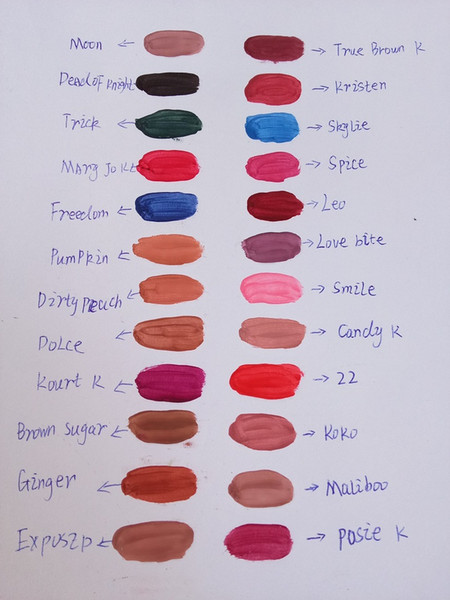 Moon
True Brown K
Dead of Knight
Kristen
Trick
Skylie
Mary Jo K
Spice
Freedom
Leo
Pumpkin
Love bite
Dirty peach
Smile
DOLCE
Candy K
Kourt K
22
Brown Sugar
KOKO
Ginger
Maliboo
Exposzp
posie K